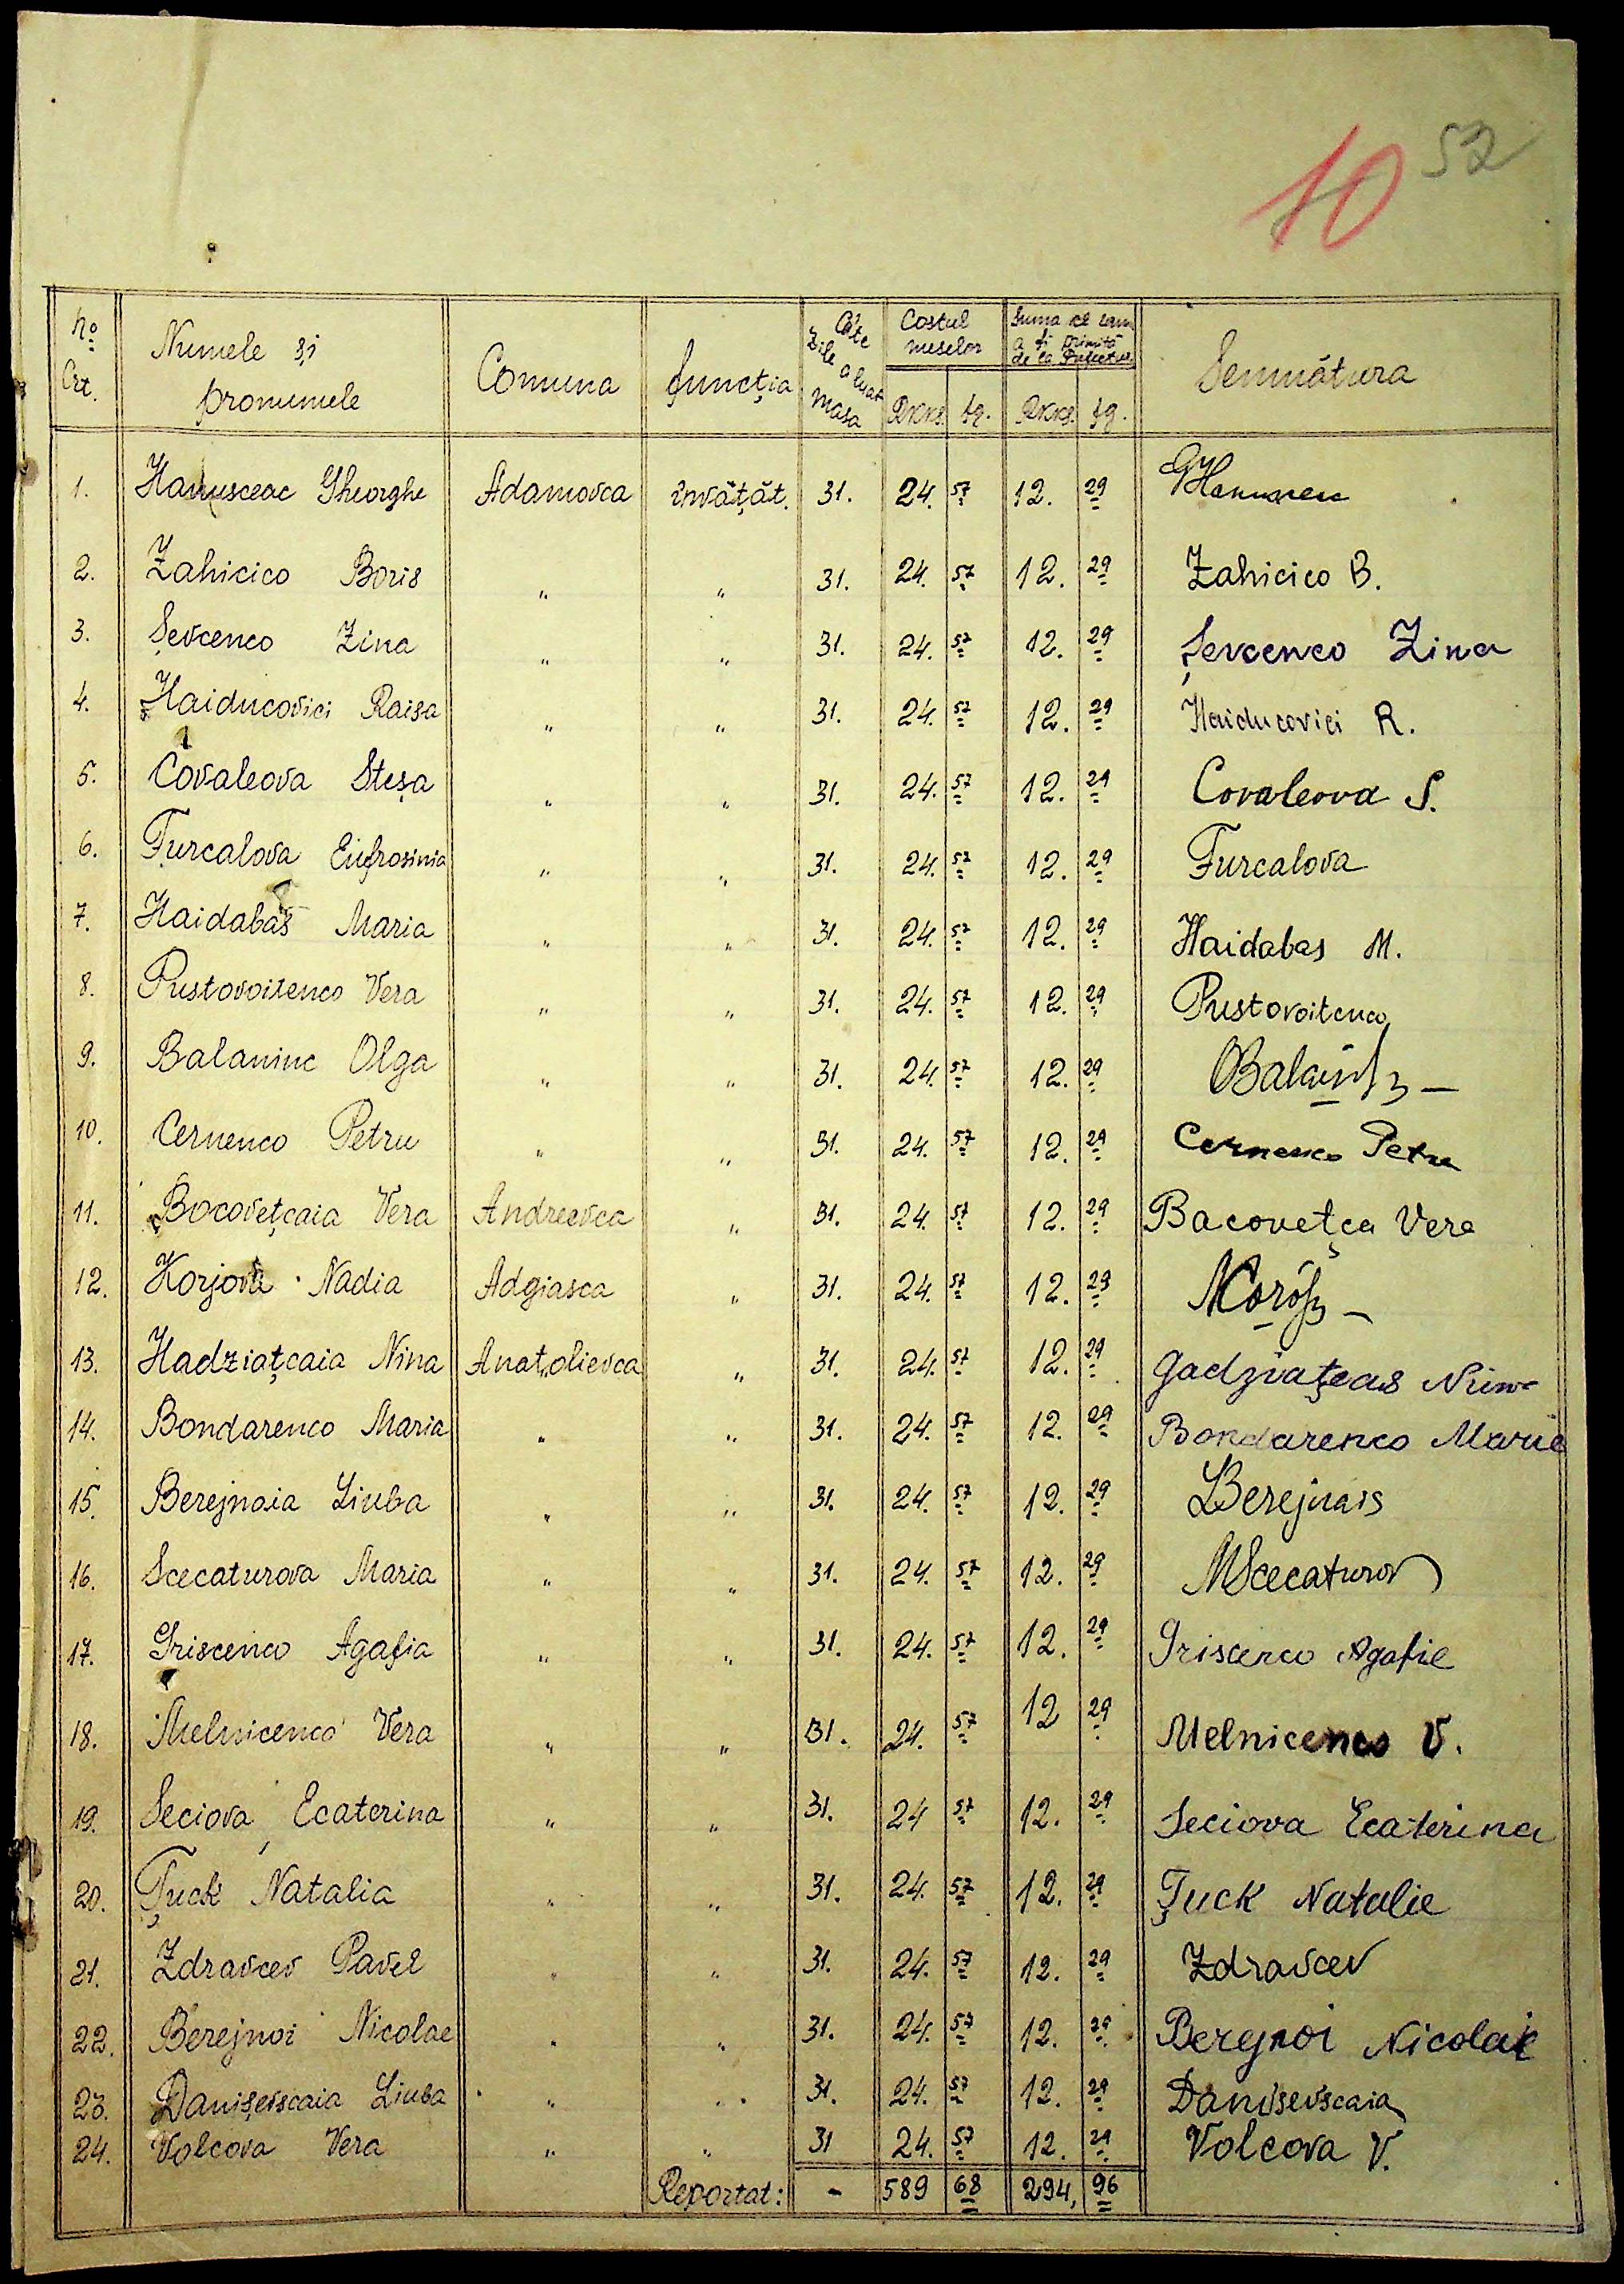 10 52
No Crt. Numele și pronumele Comuna Funcția Câte zile a luat masa Costul meselor Suma ce urm. a fi primită de la Prefectură Semnătura
RKKS. fg. RKKS. fg.
1. Hanusceac Gheorghe Adamovca învățăt. 31. 24. 57 12. 29
2. Zahicico Boris " " 31. 24. 57 12. 29 Zahicico B.
3. Șevcenco Zina " " 31. 24. 57 12. 29 Șevcenco Zina
4. Haiducovici Raisa " " 31. 24. 57 12. 29 Haiducovici R.
5. Covaleova Steșa " " 31. 24. 57 12. 29 Covaleova S.
6. Țurcalova Eufrosinia " " 31. 24. 57 12. 29 Turcalova
7. Haidabas Maria " " 31. 24. 57 12. 29 Haidabas M.
8. Pustovoitenco Vera " " 31. 24. 57 12. 29 Pustovoitenco
9. Balaninc Olga " " 31. 24. 57 12. 29
10. Cernenco Petru " " 31. 24. 57 12. 29 Cernenco Petru
11. Bocovețcaia Vera Andreevca " 31. 24. 57 12. 29 Bacovețca Vera
12. Korjova Nadia Adgiasca " 31. 24. 57 12. 29
13. Hadziațcaia Nina Anatolievca " 31. 24. 57 12. 29 Gadziațcas Nina
14. Bondarenco Maria " " 31. 24. 57 12. 29 Bondarenco Maria
15. Berejnaia Liuba " " 31. 24. 57 12. 29 LBerejnais
16. Scecaturova Maria " " 31. 24. 57 12. 29 MScecaturov
17. Griscenco Agafia " " 31. 24. 57 12. 29 Griscenco Agafie
18. Melnicenco Vera " " 31. 24. 57 12 29 Melnicenco V.
19. Seciova Ecaterina " " 31. 24 57 12. 29 Seciova Ecaterina
20. Țuck Natalia " " 31. 24. 57 12. 29 Țuck Natalie
21. Zdravcev Pavel " " 31. 24. 57 12. 29 Zdravcev
22. Berejnoi Nicolae " " 31. 24. 57 12. 29 Berejnoi Nicolai
23. Danișevscaia Liuba " " 31. 24. 57 12. 29 Danisevscaia
24. Volcova Vera " " 31 24. 57 12. 29 Volcova V.
Reportat: - 589 68 294, 96